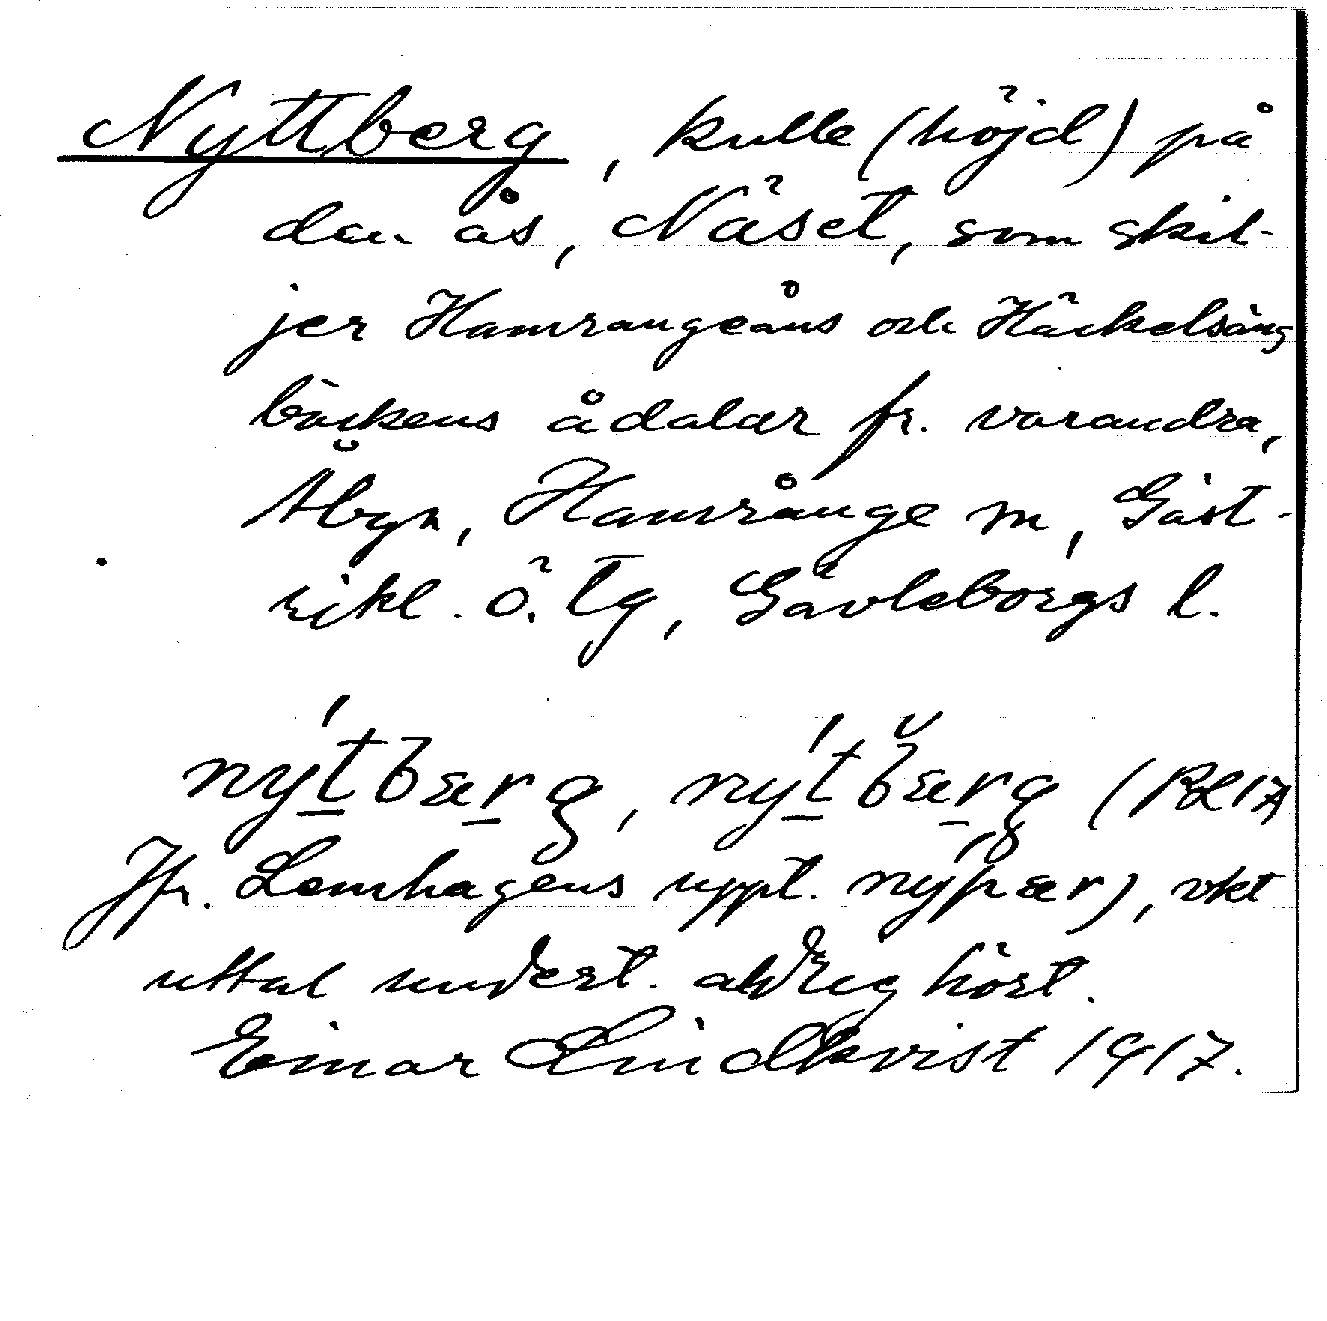 Nyttberg, kulle (höjd) på
den ås, Näset, som skil-
jer Hamrångeåns och Häckelsäng
bäckens ådalar fr. varandra,
Åbyn, Hamrånge sn, Gäst-
rikl. ö. Tg, Gävleborgs l.
nýtbærg, nýtb̆ærg (
Jfr. Lenhagens uppt. nýpær), vkt
uttal undert. aldrig hört.
Einar Lindkvist 1917.